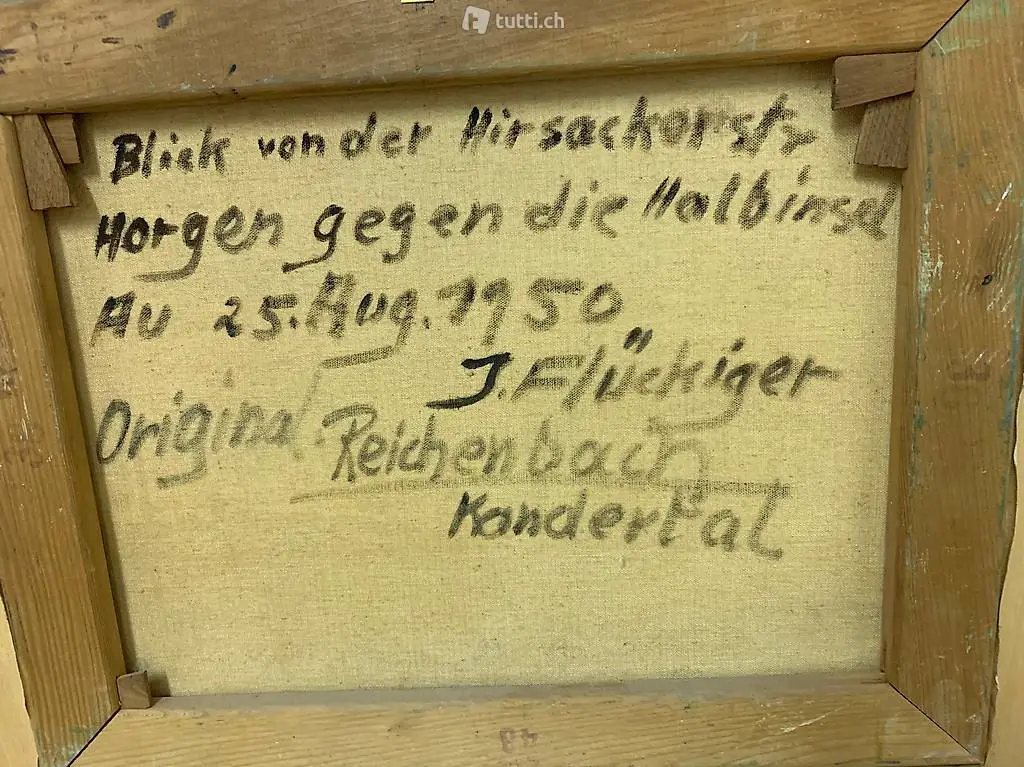 tutti.ch
Blick von der Hirsackerstr
Horgen gegen die Halbinsel
Au 25. Aug. 1950
J. Flückiger
Original Reichenbach
Kandertal
48